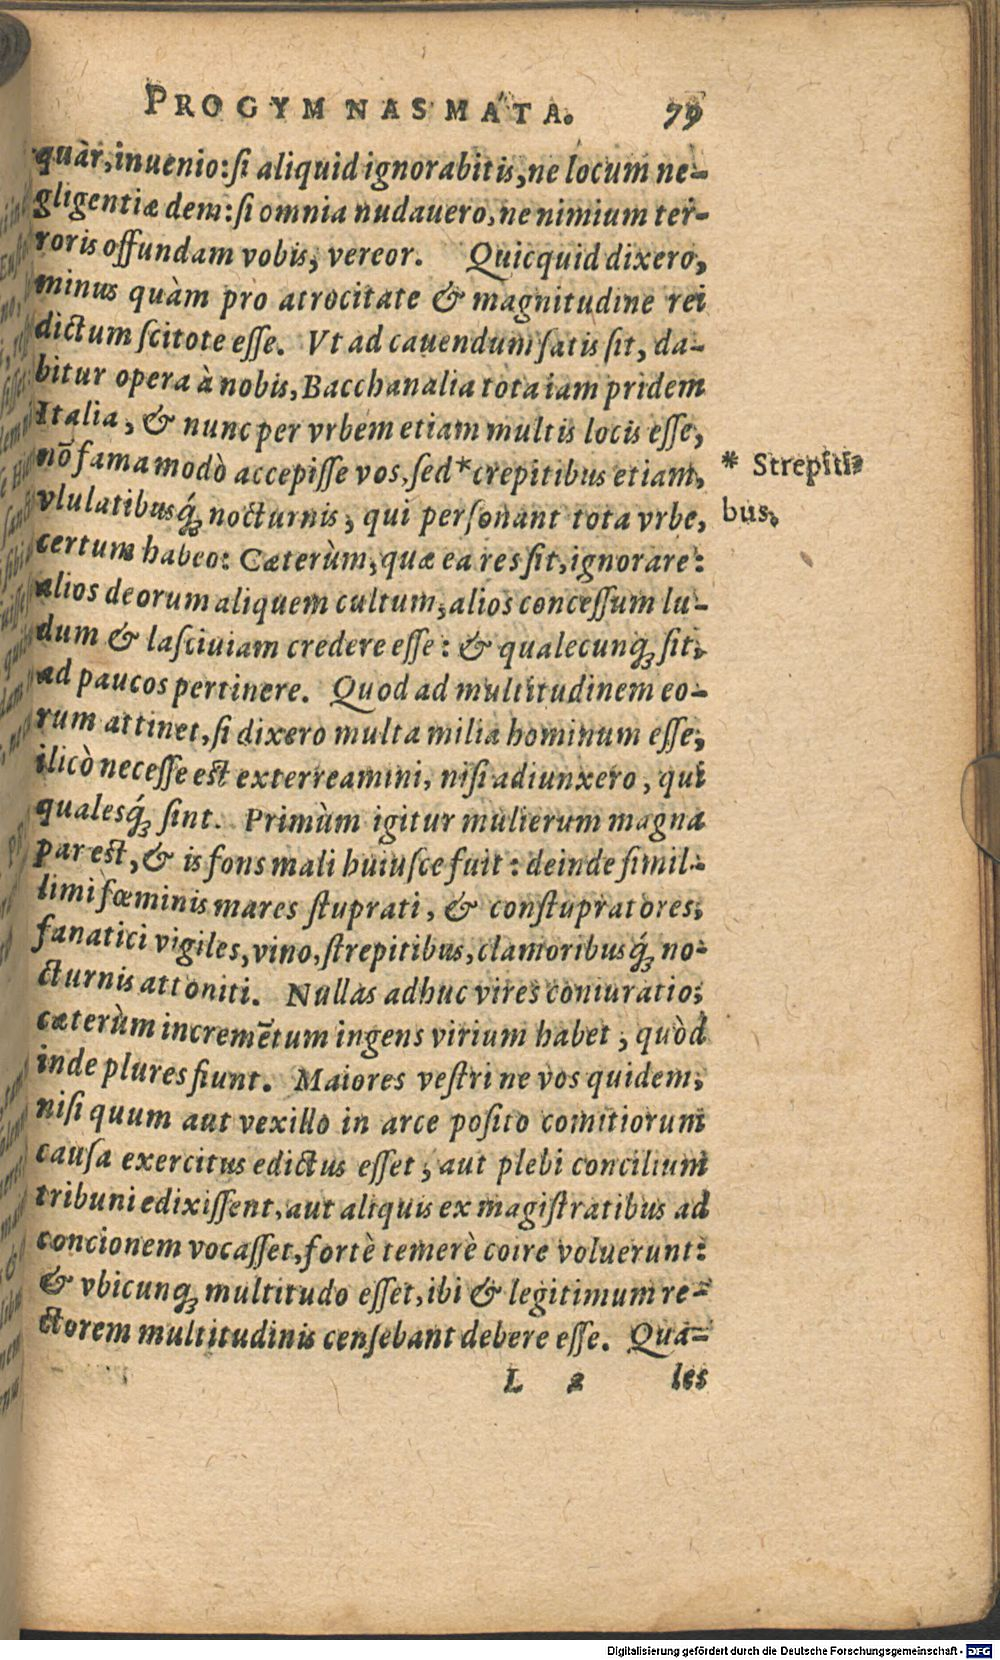 PROGYMNASMATA. 79
quàr, inuenio: ſi aliquid ignorabitis, ne locum ne-
gligentiæ dem: ſi omnia nudauero, ne nimium ter-
roris offundam vobis, vereor. Quicquid dixero,
minus quàm pro atrocitate & magnitudine rei
dictum ſcitote eſſe. Vt ad cauendum ſatis ſit, da-
bitur opera à nobis, Bacchanalia tota iam pridem
Italia, & nunc per vrbem etiam multis locis eſſe,
nō fama modò accepiſſe vos, ſed *crepitibus etiam,
* Strepiti-
bus.
vlulatibusq́ꝫ nocturnis, qui perſonant tota vrbe,
certum habeo: Cæterùm, quæ ea res ſit, ignorare:
alios deorum aliquem cultum, alios conceſſum lu-
dum & laſciuiam credere eſſe: & qualecunqꝫ ſit,
ad paucos pertinere. Quod ad multitudinem eo-
rum attinet, ſi dixero multa milia hominum eſſe,
ilicò neceſſe est exterreamini, niſi adiunxero, qui
qualesq́ꝫ ſint. Primùm igitur mulierum magna
par est, & is fons mali huiuſce fuit: deinde ſimil-
limi fœminis mares ſtuprati, & conſtupratores,
fanatici vigiles, vino, ſtrepitibus, clamoribusq́ꝫ no-
cturnis attoniti. Nullas adhuc vires coniuratio,
cæterùm incremētum ingens virium habet, quòd
inde plures fiunt. Maiores veſtri ne vos quidem,
niſi quum aut vexillo in arce poſito comitiorum
cauſa exercitus edictus eſſet, aut plebi concilium
tribuni edixiſſent, aut aliquis ex magiſtratibus ad
concionem vocaſſet, fortè temerè coire voluerunt:
& vbicunqꝫ multitudo eſſet, ibi & legitimum re-
ctorem multitudinis cenſebant debere eſſe. Qua-
L 2 les
Digitalisierung gefördert durch die Deutsche Forschungsgemeinschaft - DFG